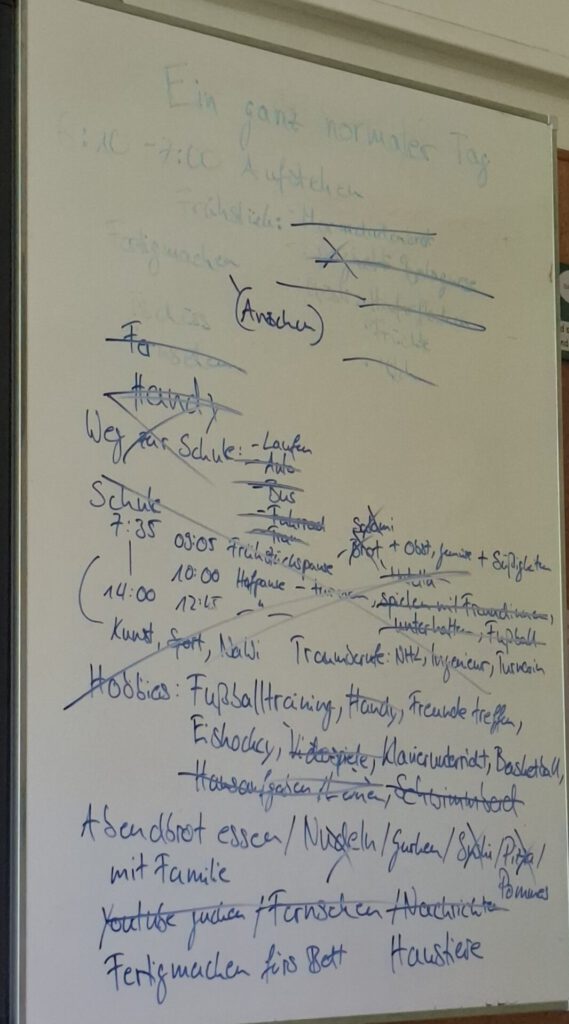 Ein ganz normaler Tag
6:10 - 7:00 Aufstehen
Frühstück:
Fertigmachen
(Anschen)
Früchte
Fe
Handy
Weg zur Schule: - Laufen
- Auto
- Bus
- Fahrrad
- Tram
Schule
7:35
Salami
09:05 Frühstückspause - Brot + Obst, Gemüse + Süßigkeiten
10:00 Hofpause - , spielen mit Freundinnen,
14:00 12:45 - " - unterhalten, Fußball
Kunst, Sport, NaWi Traumberufe: NHL, Ingenieur, Turnerin
Hobbies: Fußballtraining, Handy, Freunde treffen,
Eishockey, Videospiele, Klavierunterricht, Basketball,
Hausaufgaben / Lernen, Schwimmbad
Abendbrot essen / Nudeln / Gurken / Sushi / Pizza /
mit Familie Pommes
Youtube gucken / Fernsehen / Nachrichten
Fertigmachen fürs Bett Haustiere